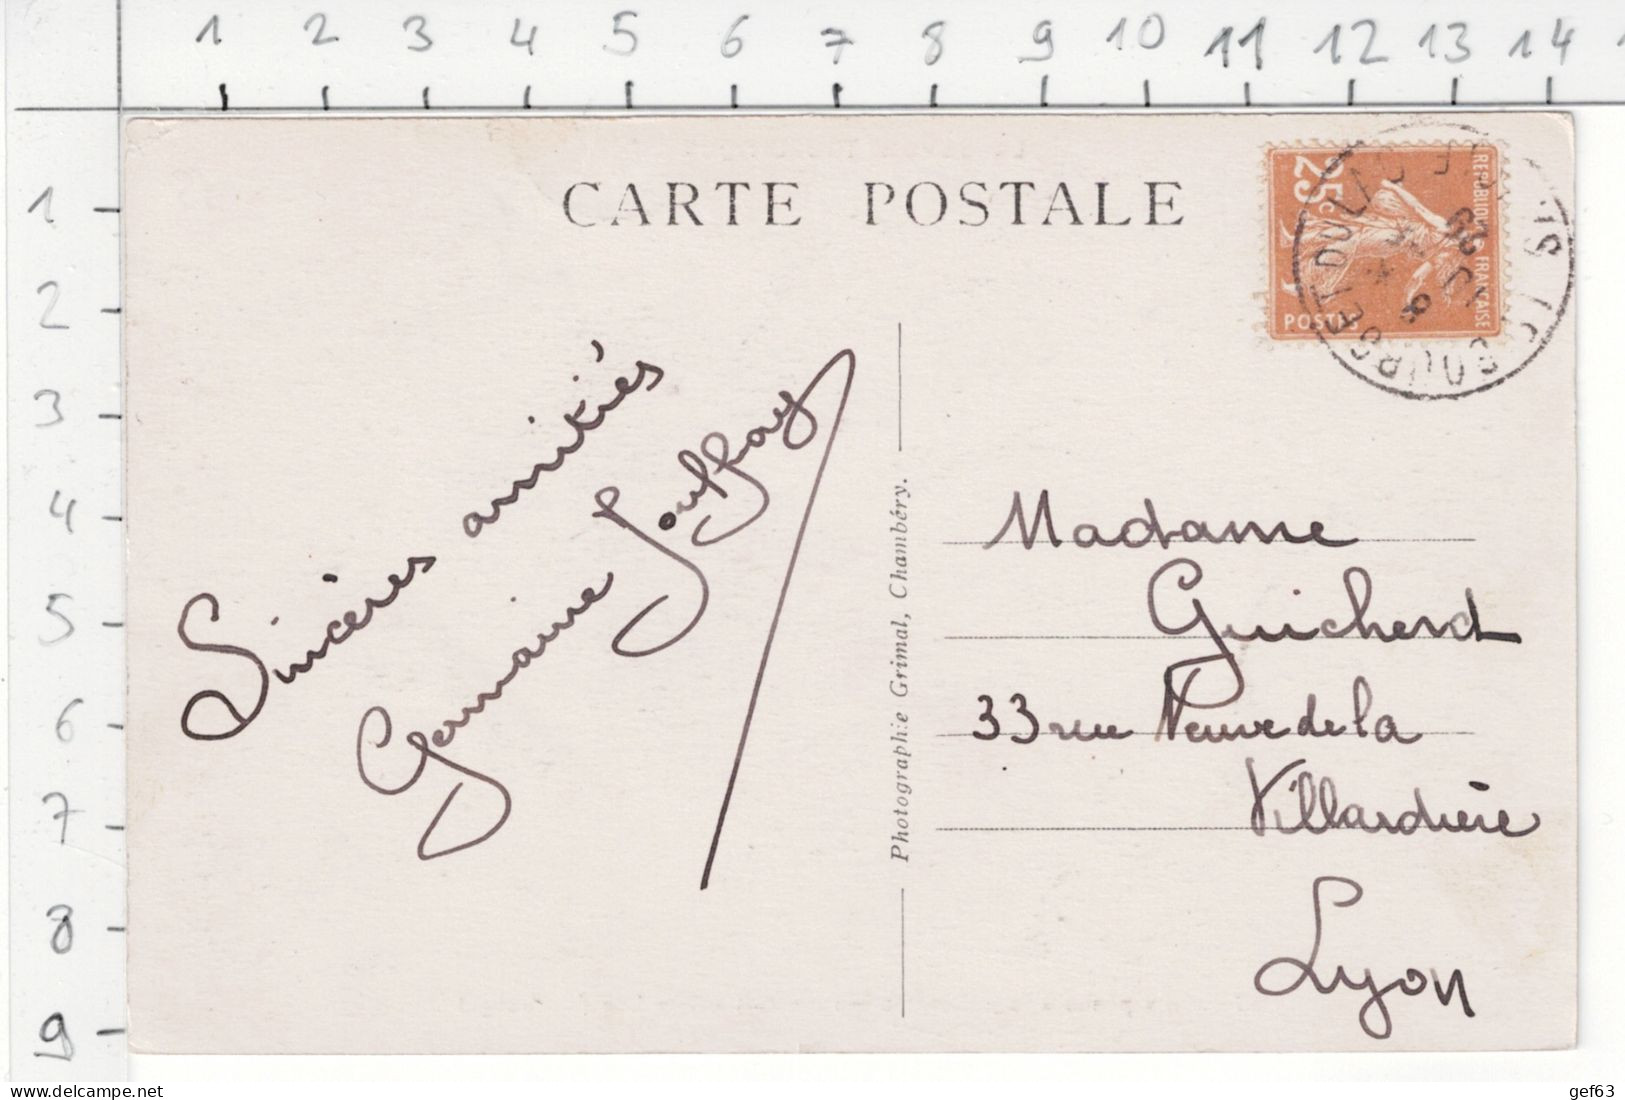 1 2 3 4 5 6 7 8 9 10 11 12 13 14
1
2
3
4
5
6
7
8
9
CARTE POSTALE
25c
REPUBLIQUE FRANÇAISE
POSTES
BOURGET DU LAC
Sincères amitiés
Germaine Jouffray
Photographie Grimal, Chambéry.
Madame
Guicherd
33 rue Neuve de la
Villardière
Lyon
gef63